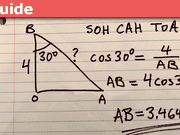 uide
SOH CAH TOA
B
30°
?
4
O
A
cos30° = 4
AB
AB = 4cos3
AB = 3.464